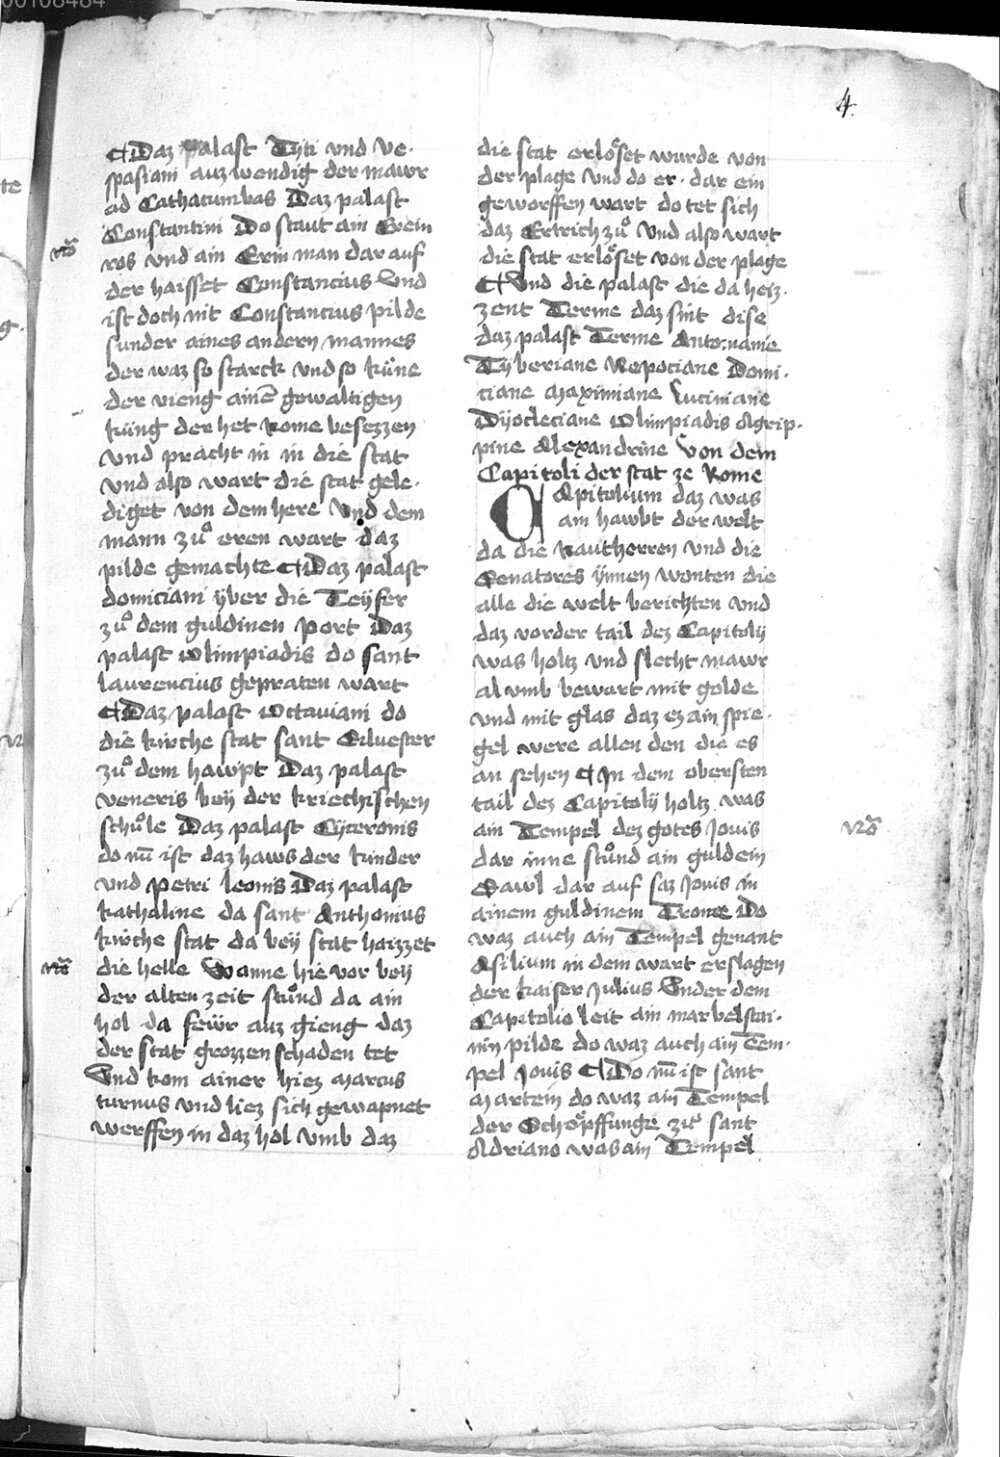 4
¶ Daz palast Tyti vnd ve·
spasiani auzwendig der mawr
ad Cathacumbas Daz palast
Constantini Do staut ain Grein
ros vnd ain Erin man dar auf
der haisset Constancius Vnd
ist doch nit Constancius pilde
sunder aines andern mannes
der waz so starck vnd so küne
der vieng ainē gewaltigen
küng der het Rome besezzen
vnd pracht in in die stat
vnd also wart die stat gele·
diget von dem here Vnd dem
mann zuͦ eren wart daz
pilde gemachte ¶ Daz palast
domiciani yber die Teyfer
zuͦ dem guldinen port Daz
palast Olimpiadis do sant
laurencius gepraten wart
¶ Daz palast Octauiani do
die kirche stat sant Siluester
zuͦ dem hawpt Daz palast
veneris bey der kriechischen
schuͦle Daz palast Cyceronis
do nū ist daz haws der kinder
vnd petri leonis Daz palast
kathaline da sant Anthonius
kirche stat da bey stat haizzet
die helle Wanne hie vor bey
der alten zeit stuͦnd da ain
hol da fewr auz gieng daz
der stat grozzen schaden tet
Vnd kom ainer hiez Marcus
turnus vnd liez sich gewapnet
werffen in daz hol vmb daz
die stat erlöset wurde von
der plage vnd do er · dar ein
geworffen wart do tet sich
daz Ertrich zuͦ Vnd also wart
die stat erlöset von der plage
¶ Vnd die palast die da heiz·
zent Terme daz sint dise
daz palast Terme Antoniane
Tyberiane Nepociane Domi·
ciane Maximiane Luciniane
Dyocleciane Olimpiadis Agrip·
pine Alexandrine Von dem
Capitoli der stat ze Rome
Capitolium daz was
ain hawbt der welt
da die Rautherren vnd die
Senatores ynnen wonten die
alle die welt berichten vnd
daz vorder tail dez Capitoly
was holtz vnd slecht mawr
al vmb bewart mit golde
vnd mit glas daz ez ain spie·
gel were allen den die es
an sehen ¶ In dem obersten
tail dez Capitoly holtz was
ain Tempel dez gotes Jouis
dar inne stuͦnd ain guldein
Sawl dar auf saz Jouis in
ainem guldinem Trone Do
waz auch ain Tempel genant
Asilium in dem wart erslagen
der kaiser Julius Vnder dem
Capitolio leit ain marbelstai·
nin pilde do waz auch ain Tem·
pel Jouis ¶ Do nū ist sant
Martein do waz ain Tempel
der Schöpffunge zuͦ sant
Adriano was ain Tempel